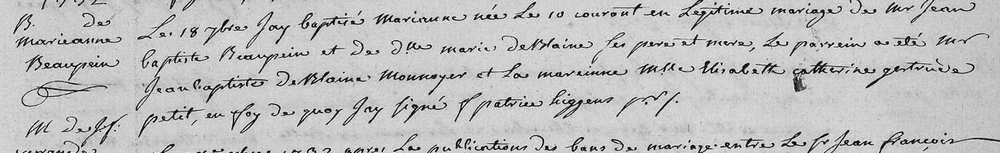 B. de Le 18 7bre Jay baptisé Marianne née Le 10 courant en Legitime mariage de Mr Jean
Marieanne baptiste Beaupein et de dlle marie deBlaine Ses pere et mere, Le parrein a eté Mr
Beaupein Jean baptiste deBlaine Monnoyer et La mareinne Mlle Elisabeth catherine gertrude
petit, en foy de quoy Jay signé f patrice higgens
M de J.f.
apres La publications des bans de mariage entre Le Sr Jean françois